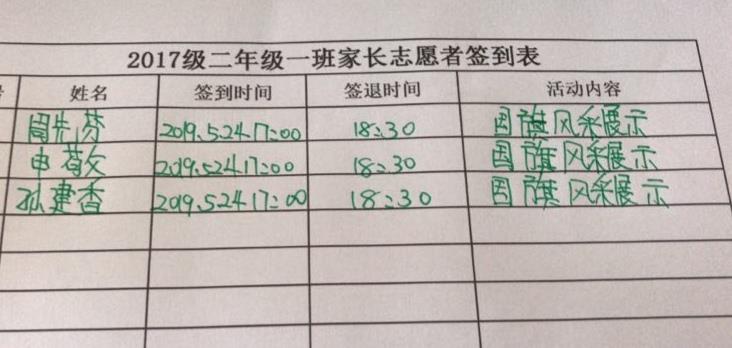 2017级二年级一班家长志愿者签到表
姓名 签到时间 签退时间 活动内容
周先芬 2019.5.24.17:00 18:30 国旗风采展示
申 2019.5.24.17:00 18:30 国旗风采展示
孙建香 2019.5.24.17:00 18:30 国旗风采展示